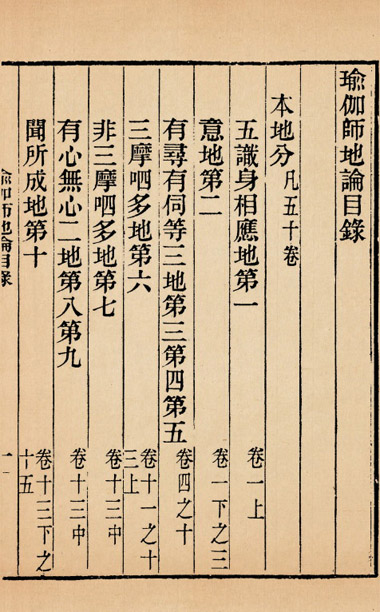 瑜伽師地論目錄
本地分凡五十卷
五識身相應地第一 卷一上
意地第二 卷一下之三
有尋有伺等三地第三第四第五 卷四之十
三摩呬多地第六 卷十一之十三上
非三摩呬多地第七 卷十三中
有心無心二地第八第九 卷十三中
聞所成地第十 卷十三下之十五
瑜伽師地論目錄 一